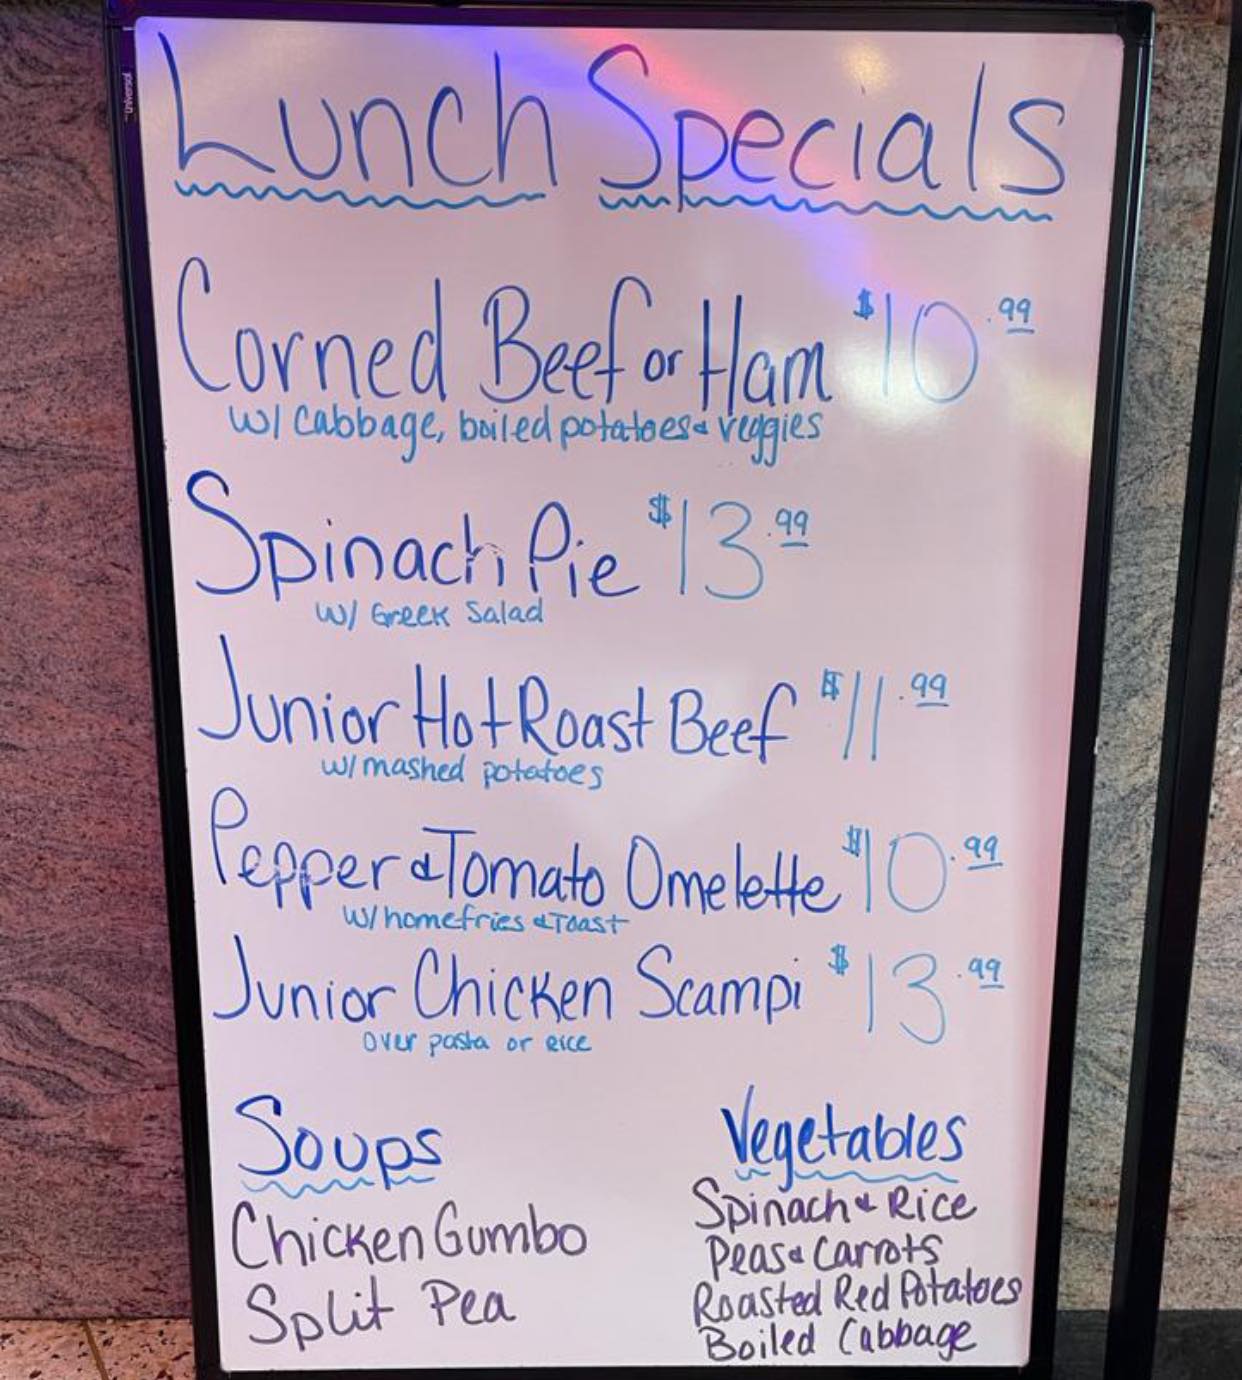 universal
Lunch Specials
Corned Beef or Ham $10.99
w/ Cabbage, boiled potatoes & veggies
Spinach Pie $13.99
w/ Greek Salad
Junior Hot Roast Beef $11.99
w/ mashed potatoes
Pepper & Tomato Omelette $10.99
w/ homefries & Toast
Junior Chicken Scampi $13.99
over pasta or rice
Soups
Chicken Gumbo
Split Pea
Vegetables
Spinach & Rice
Peas & Carrots
Roasted Red Potatoes
Boiled Cabbage